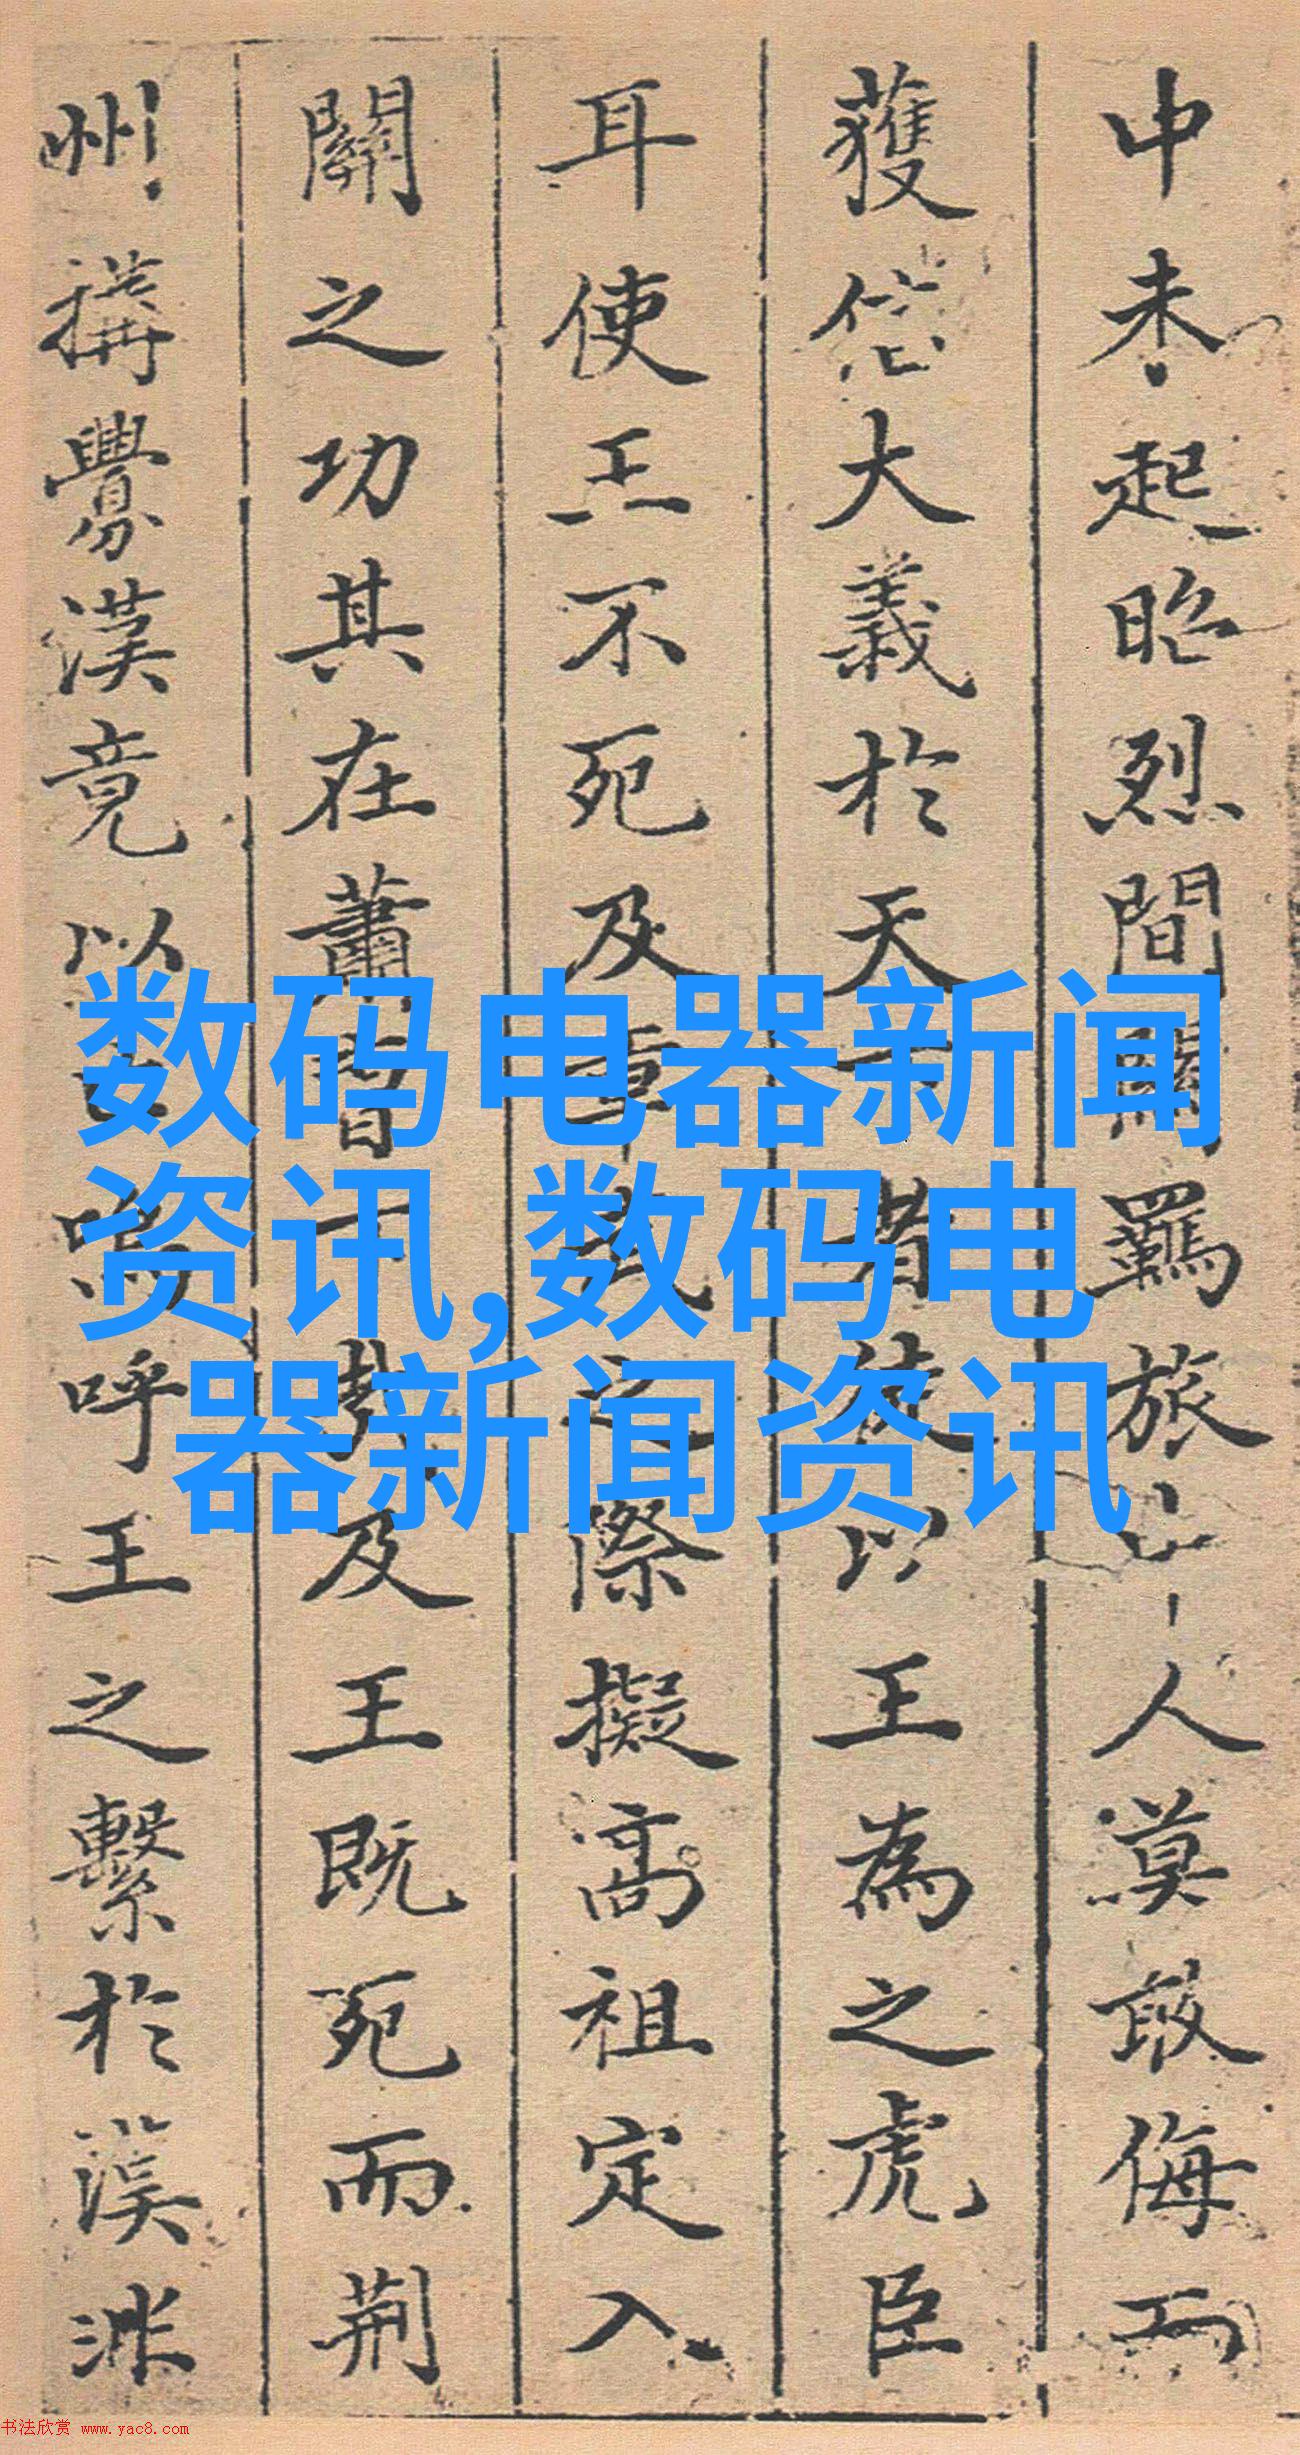 中未起昭烈間關羈旅人漠敢侮而
獲信大義於天下者徒以王為之虎臣
耳使王不死及之際擬高祖定入
關之功其在蕭曹下及王既死而荊
州搆釁漢竟以亡嗚呼王之繫於漢
数码电器新闻
资讯,数码电
器新闻资讯
书法欣赏 www.yac8.com